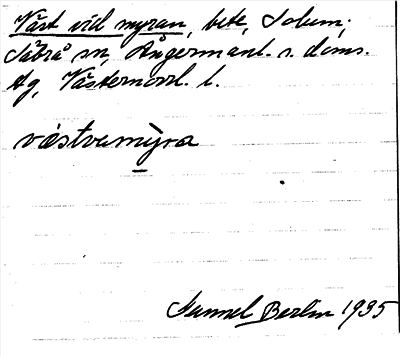 Väst vid myran, bete, Solum,
Säbrå sn, Ångermanl. s. doms.
tg, Västernorrl. l.
västvemýra
Gunnel Berlin 1935